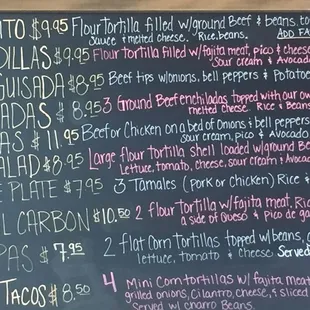 ITO $9.95 Flour Tortilla filled w/ground Beef & beans. to
Sauce & melted cheese. Rice, beans. ADD FA
DILLAS $9.95 Flour tortilla filled w/fajita meat, pico & cheese
Sour cream & Avocad
GUISADA $8.95 Beef tips w/onions, bell peppers & Potatoe
ADAS $8.95 3 Ground Beef enchiladas topped with our ow
melted cheese. Rice & Beans
AS $11.95 Beef or Chicken on a bed of Onions & bell peppers
sour cream, pico & Avocado
ALAD $8.95 Large flour tortilla shell loaded w/ground Be
Lettuce, tomato, cheese, sour cream & Avocad
E PLATE $7.95 3 Tamales (pork or chicken) Rice &
L CARBON $10.50 2 flour tortilla w/fajita meat. Ric
a side of Queso & Pico de ga
PAS $7.95 2 flat Corn tortillas topped w/beans, g
lettuce, tomato & cheese Served
TACOS $8.50 4 Mini Corn tortillas w/ fajita meat
grilled onions, Cilantro, cheese, & sliced
Served w/ charro Beans.